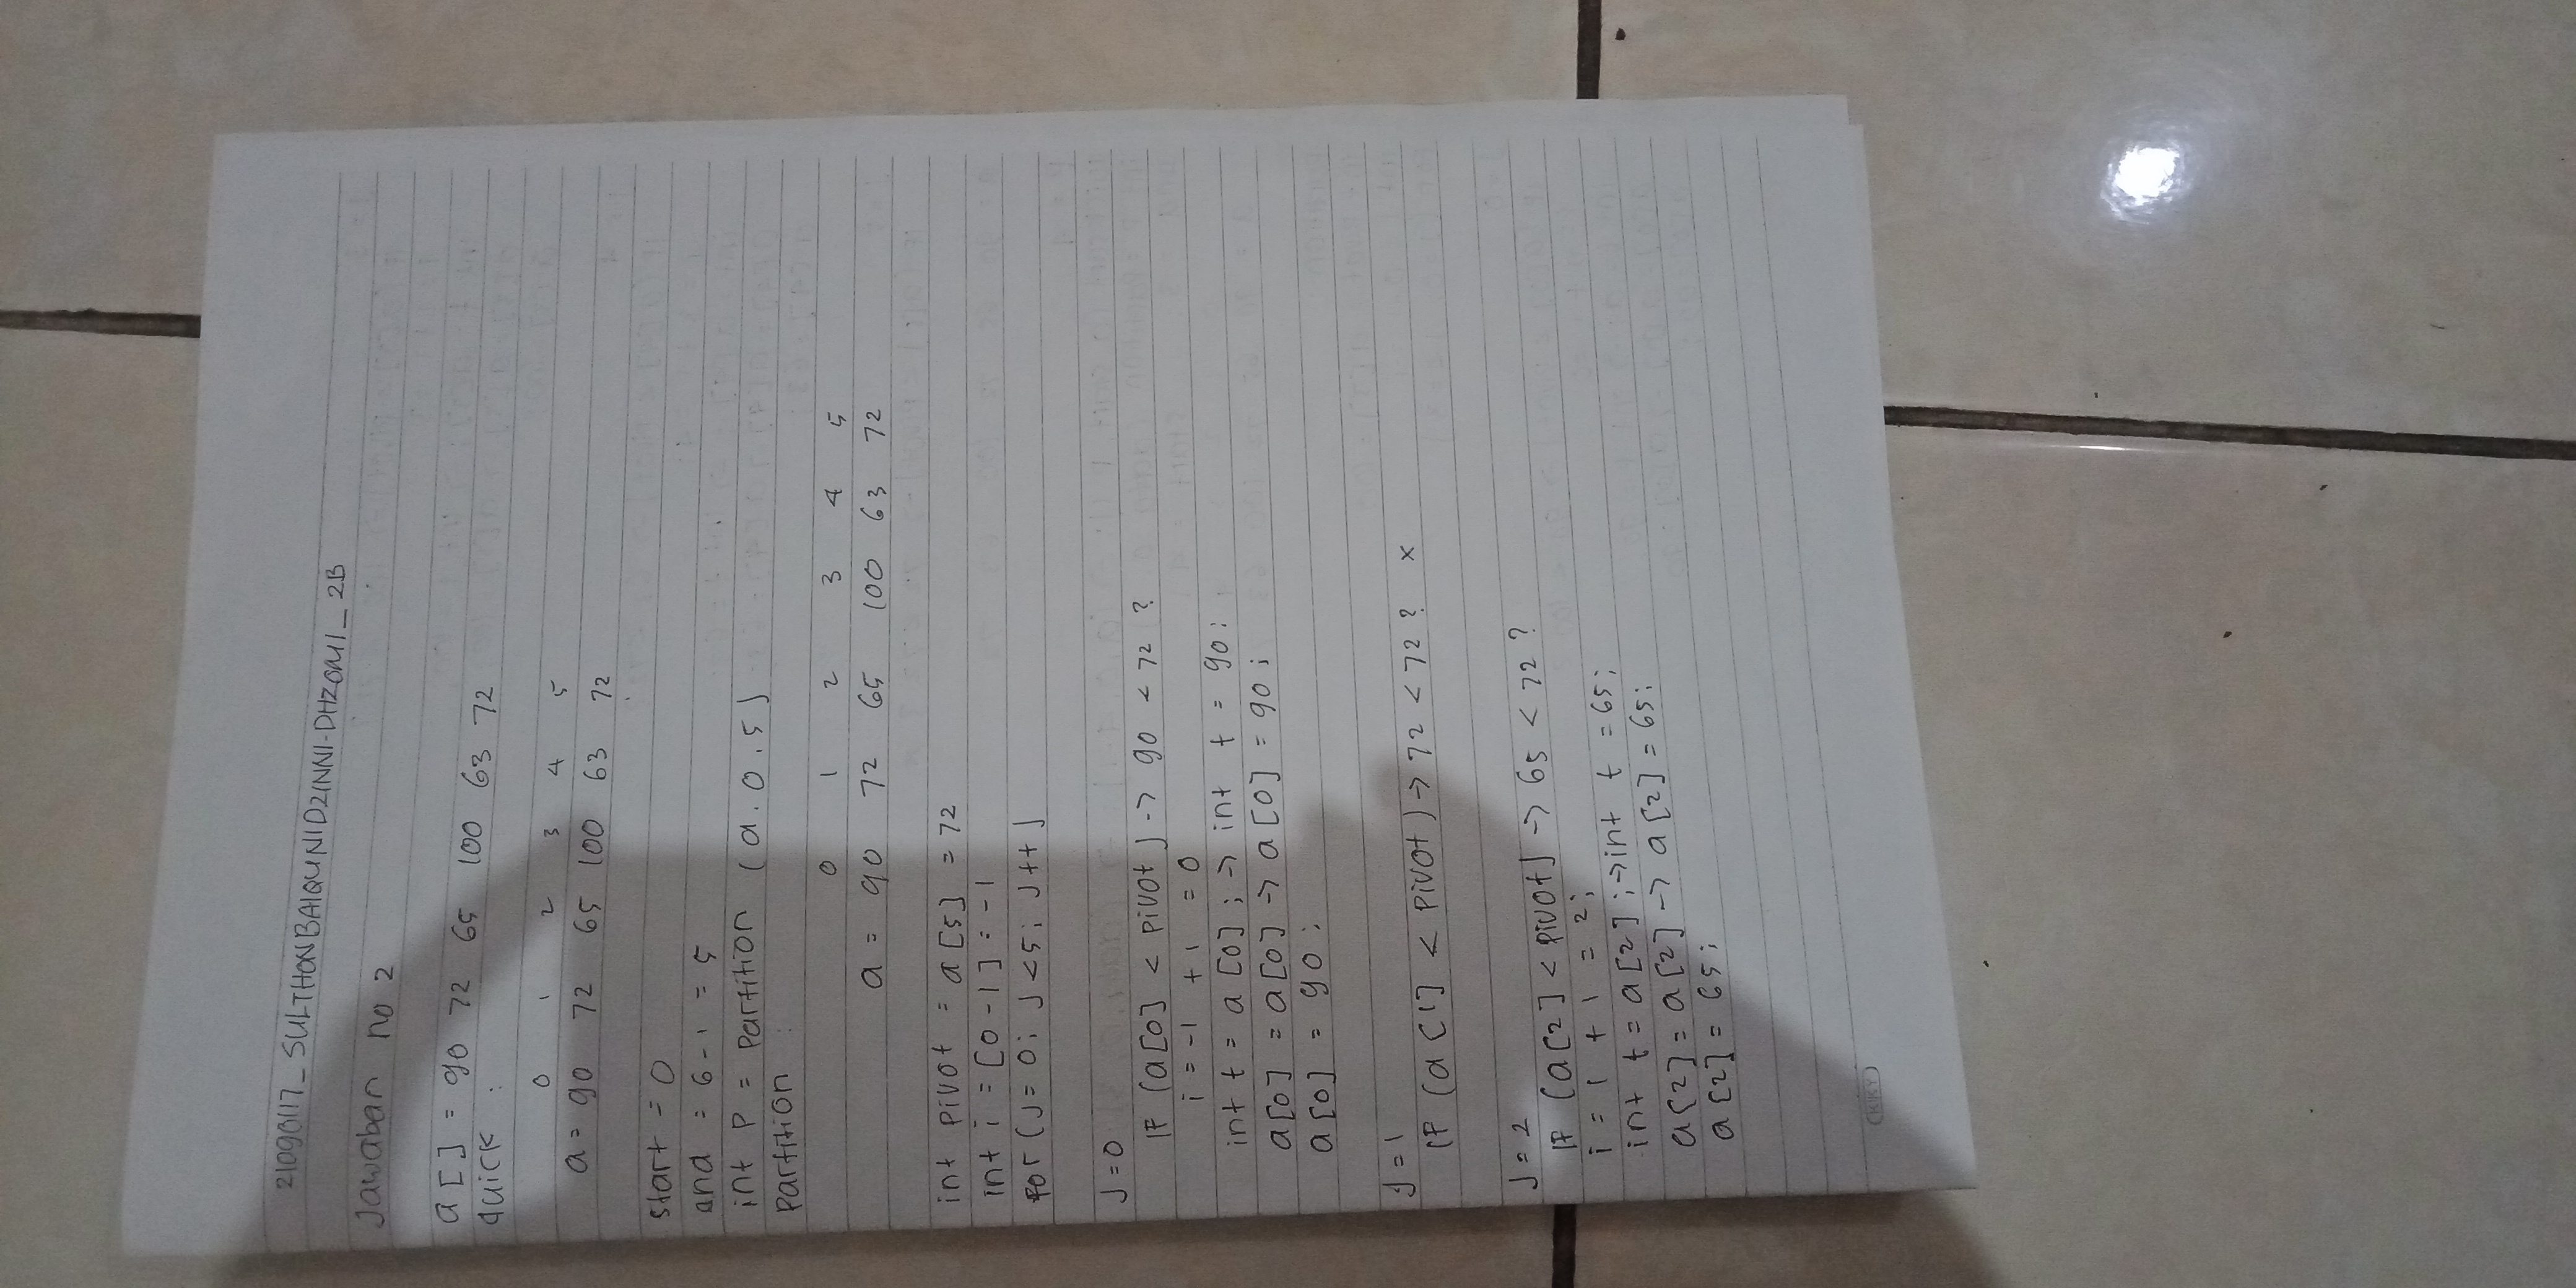 21090117_SULTHONBAIQUNIDZINNI-DHZOMI_2B
Jawaban no 2
a [ ] = 90 72 65 100 63 72
quick :
0 1 2 3 4 5
a = 90 72 65 100 63 72
start = 0
and = 6 - 1 = 5
int P = Partition (a . 0 . 5)
Partition :
0 1 2 3 4 5
a = 90 72 65 100 63 72
int pivot = a [5] = 72
int i = [0 - 1] = -1
for (J = 0; J < 5; J++)
J = 0
IF (a[0] < pivot) -> 90 < 72 ?
i = -1 + 1 = 0
int t = a [0] ; -> int t = 90;
a[0] = a[0] -> a [0] = 90 ;
a[0] = 90 ;
J = 1
IF (a [1] < pivot) -> 72 < 72 ? x
J = 2
IF (a[2] < pivot) -> 65 < 72 ?
i = 1 + 1 = 2;
int t = a [2] ; -> int t = 65;
a[2] = a [2] -> a [2] = 65;
a [2] = 65;
KIKY